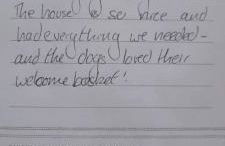 The house is so nice and
had everything we needed -
and the dogs loved their
welcome basket!